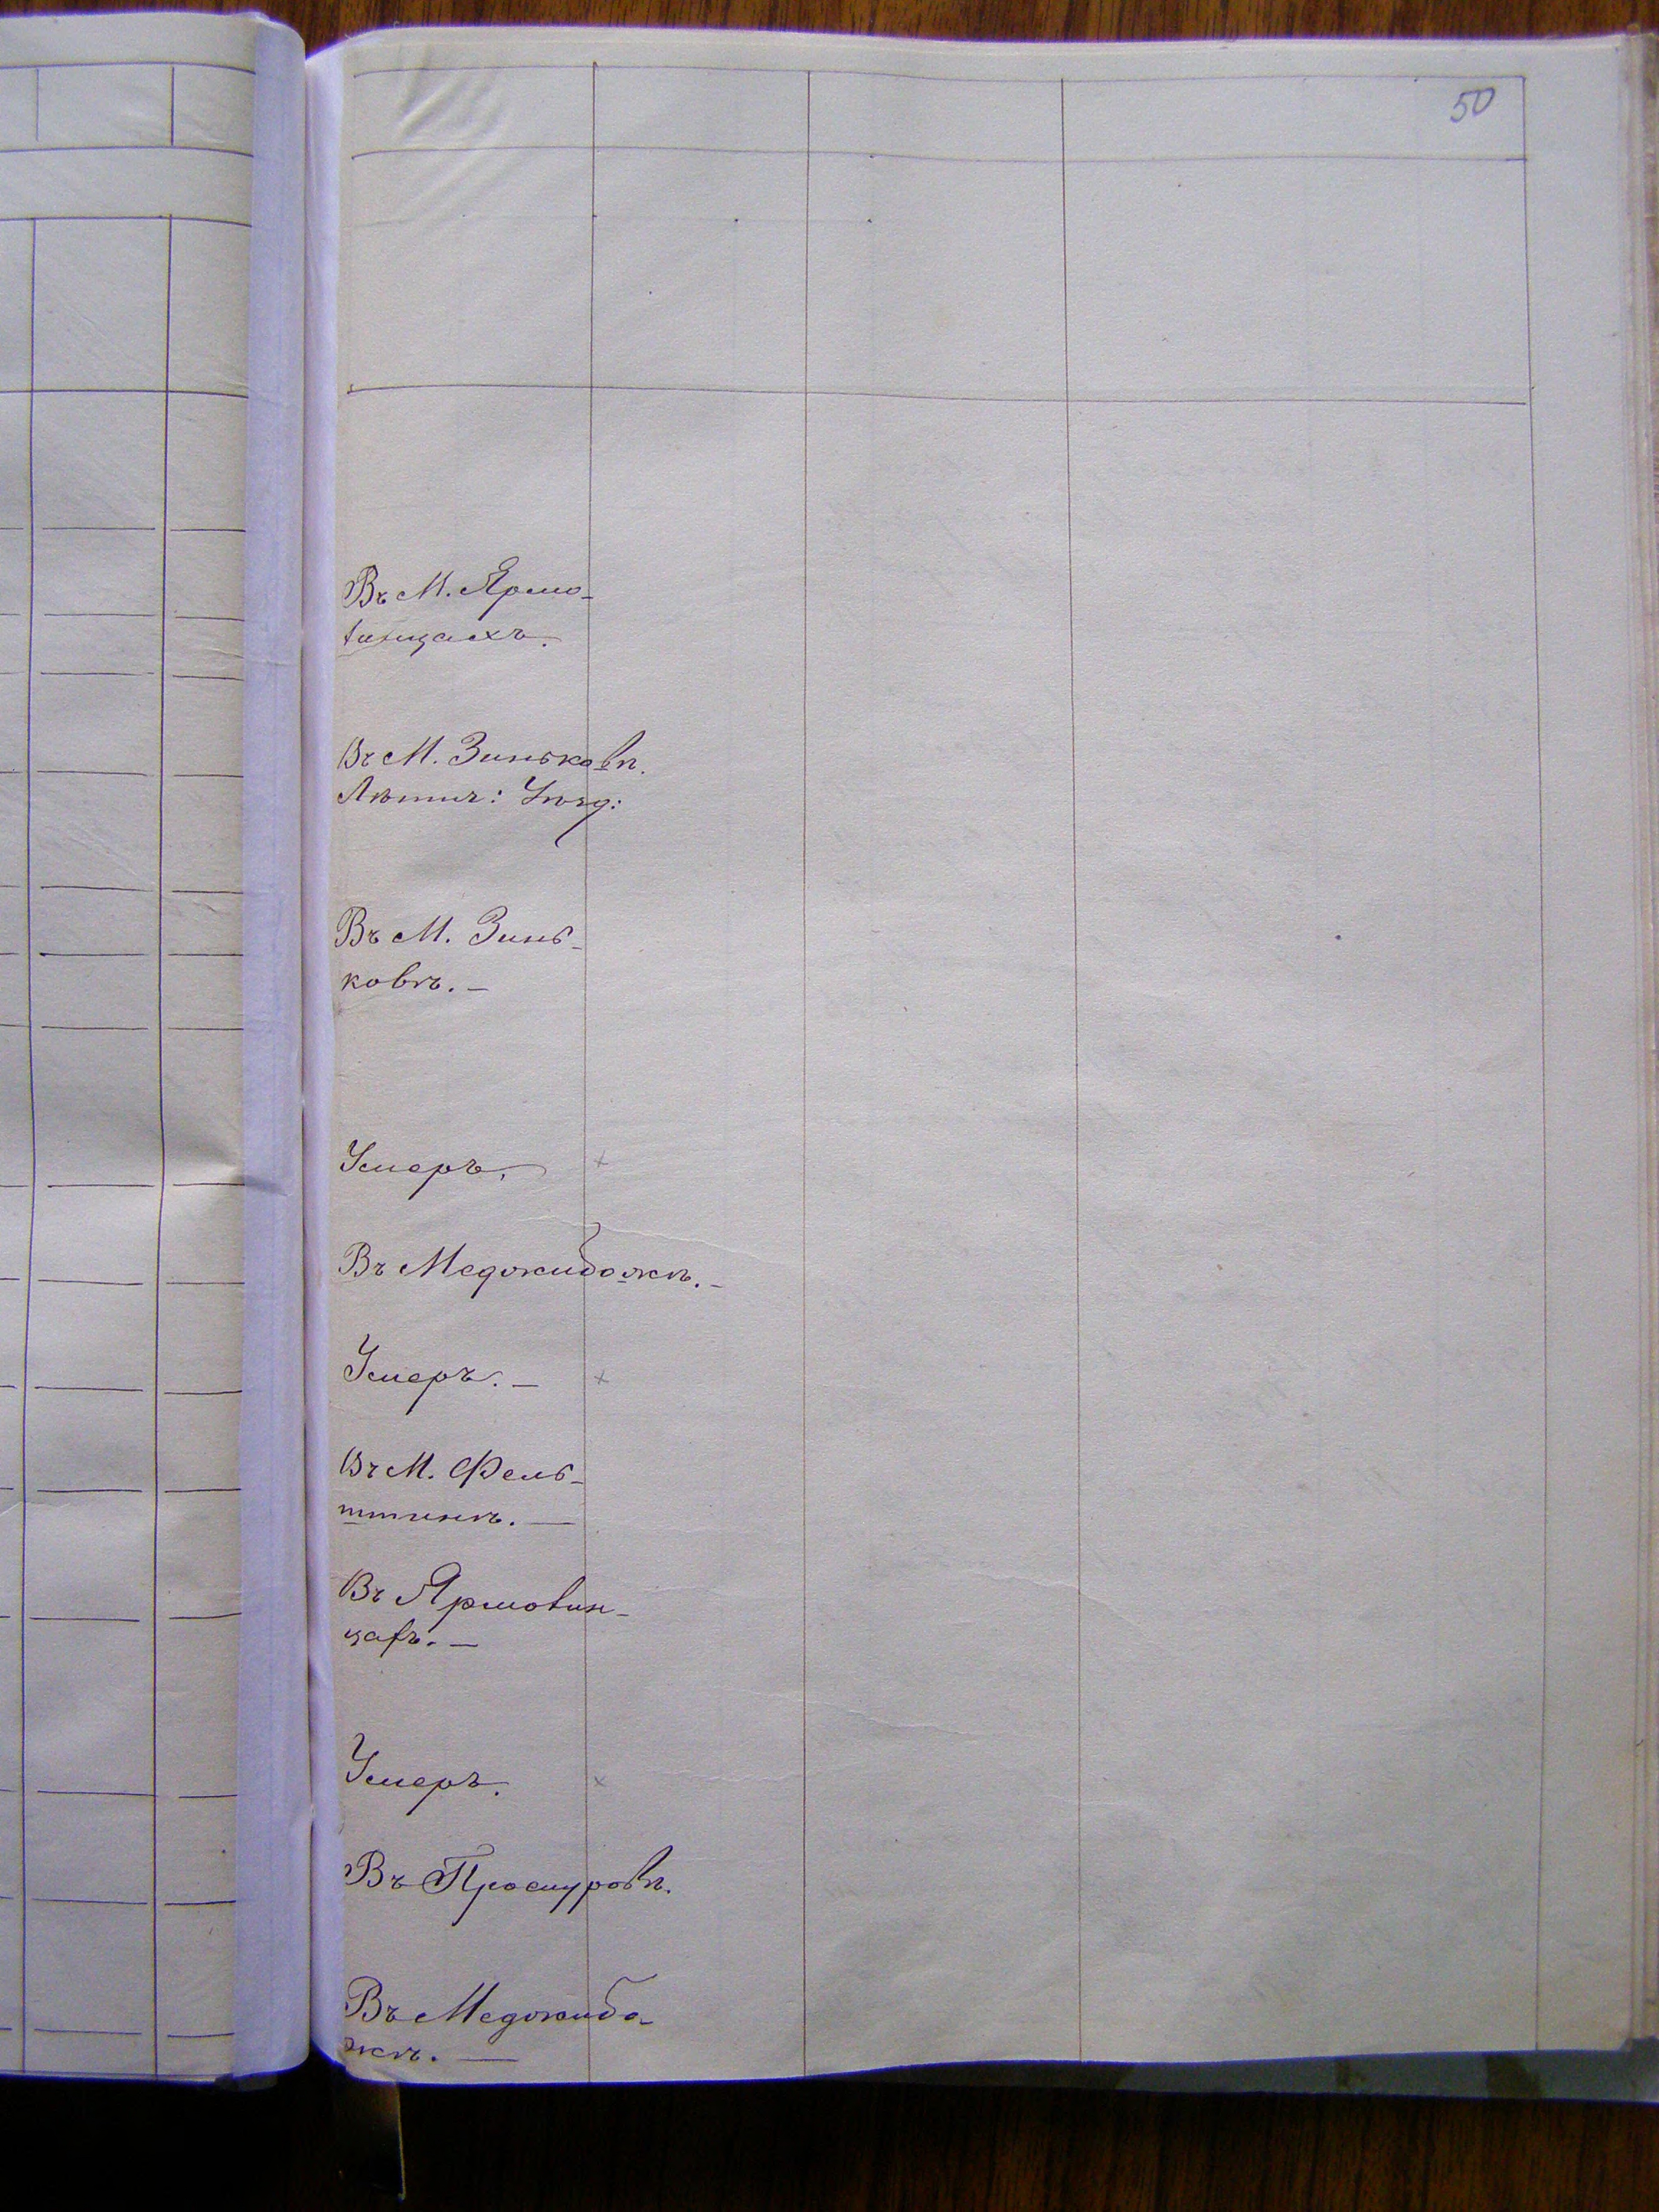 50
Въ М. Ярмо-
линцахъ.
Въ М. Зиньковѣ.
Лѣтич: Уѣзд:
Въ М. Зинь-
ковѣ. —
Умеръ.
Въ Меджибожѣ. —
Умеръ. —
Въ М. Фель-
штинѣ. —
Въ Ярмолин-
цахъ. —
Умеръ.
Въ Проскуровѣ.
Въ Меджибо-
жѣ. —